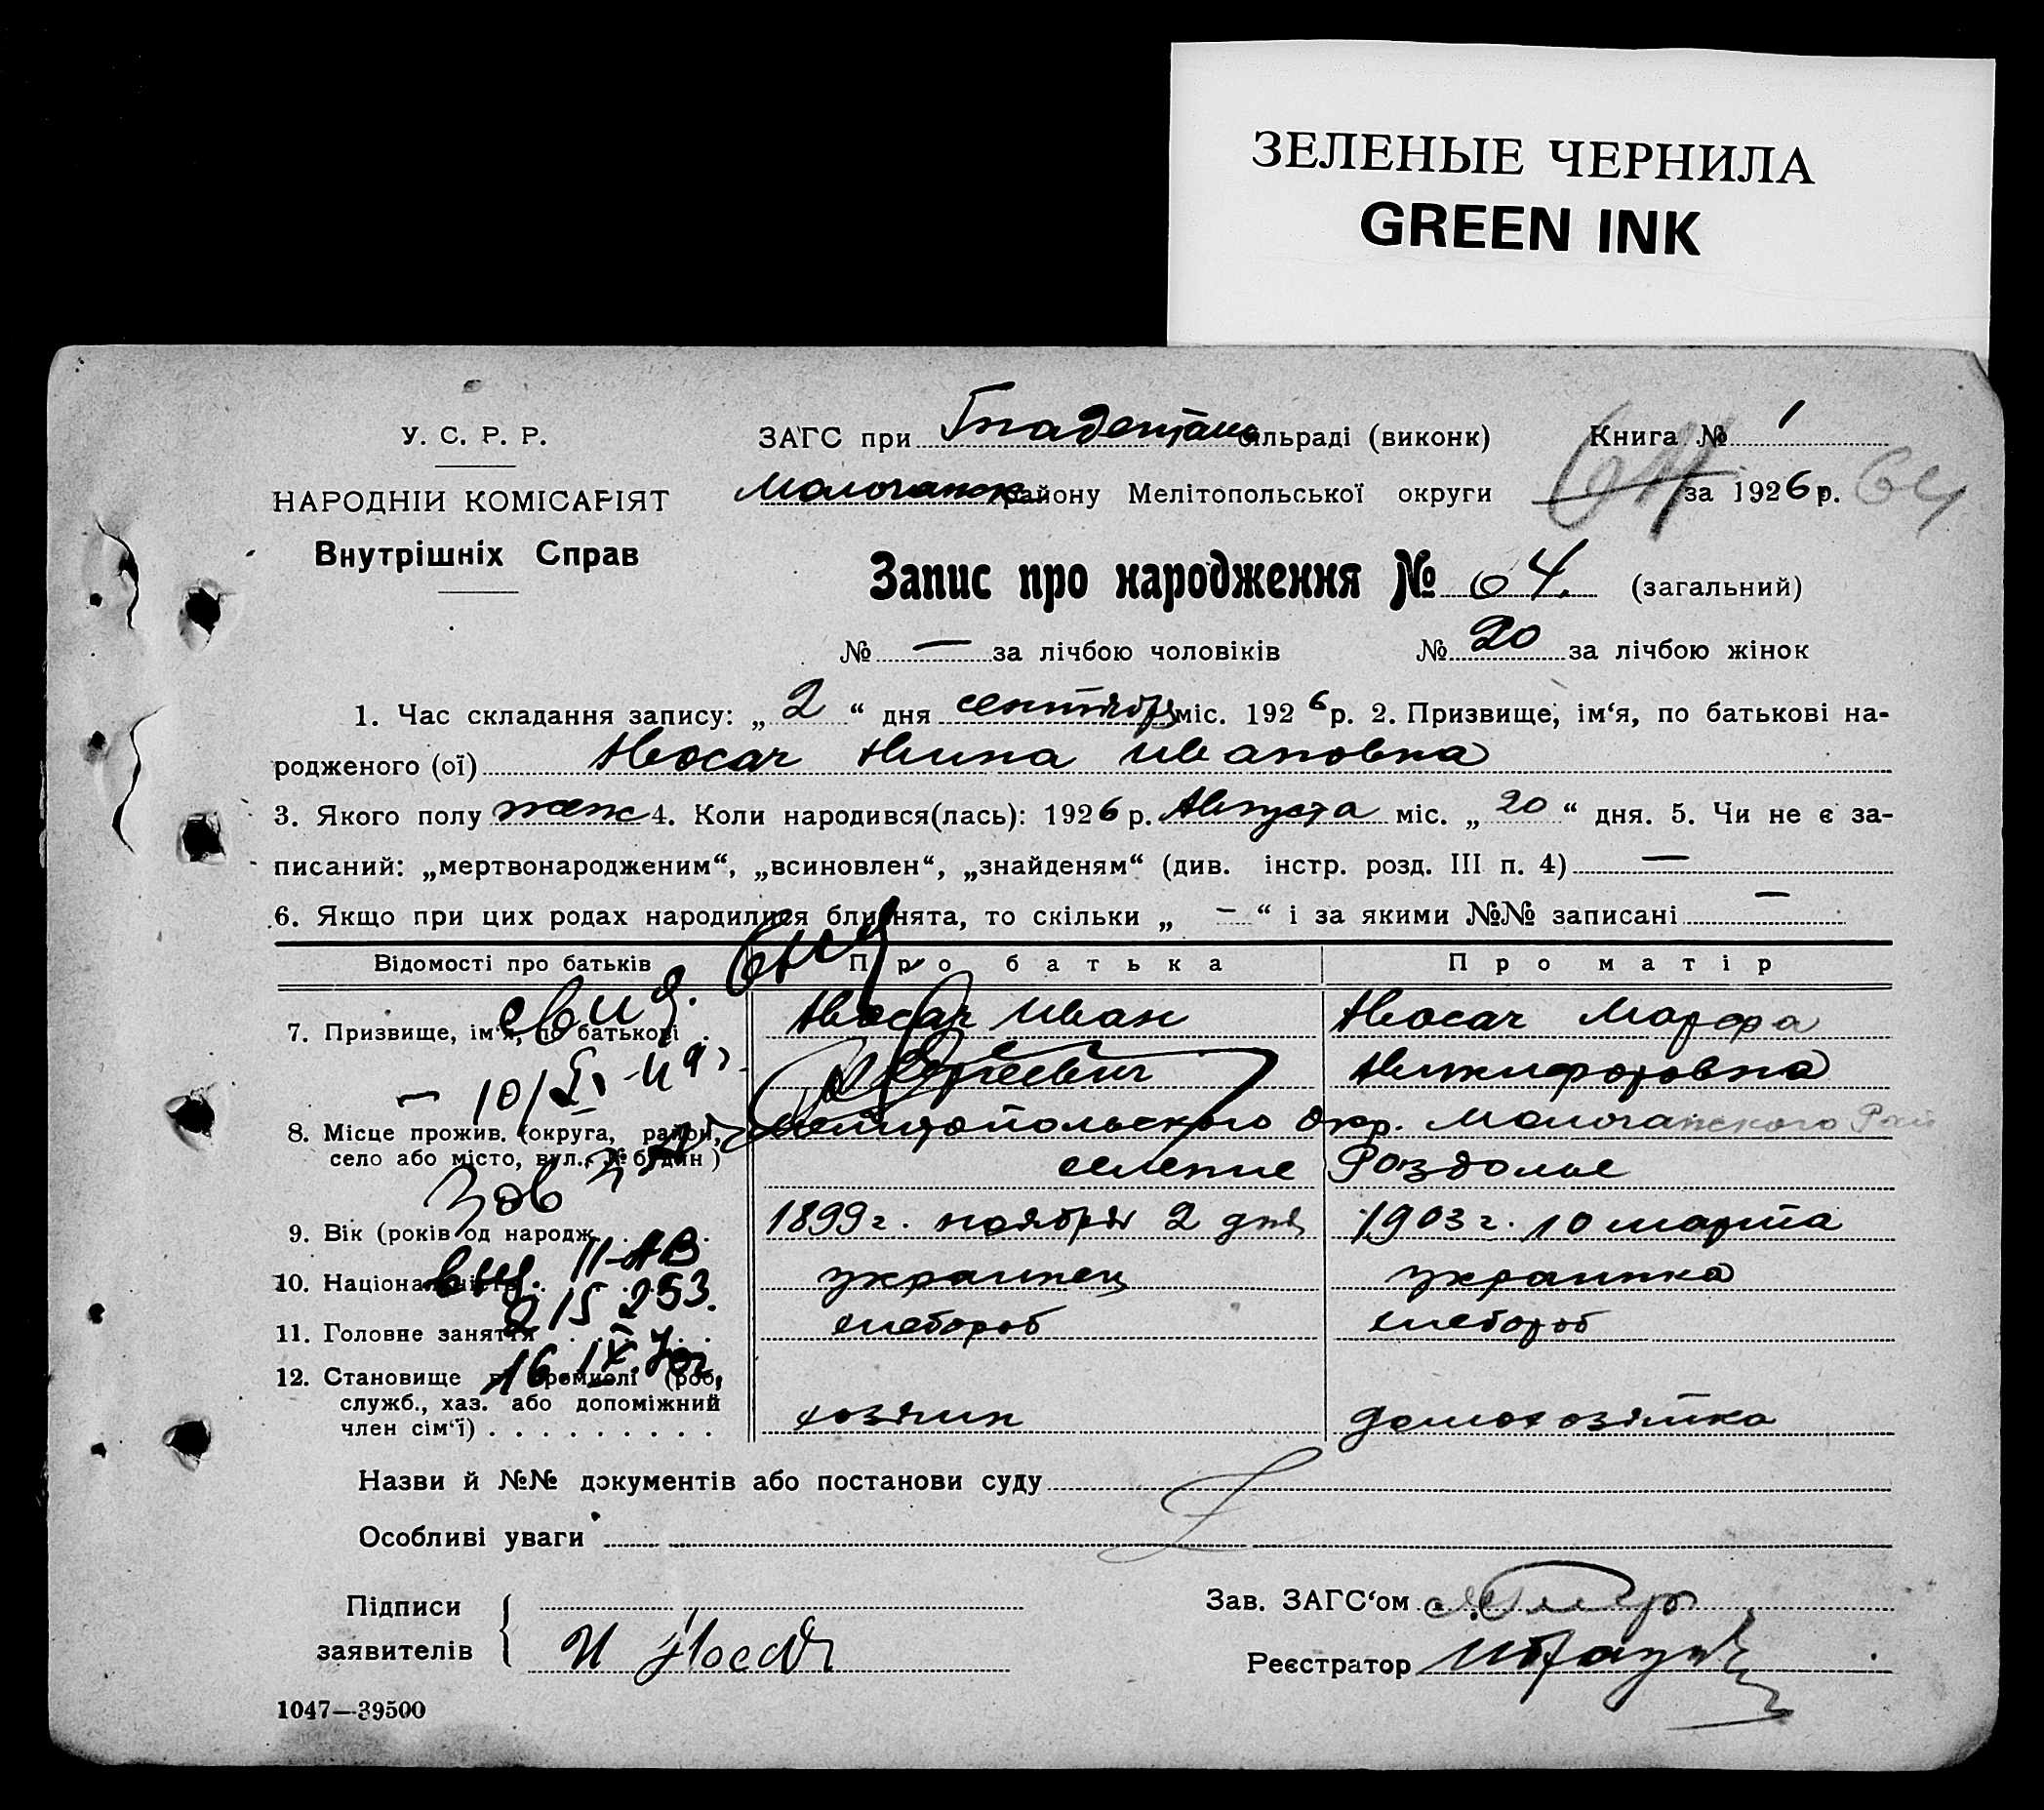 ЗЕЛЕНЫЕ ЧЕРНИЛА
GREEN INK
У. С. Р. Р.
НАРОДНІЙ КОМІСАРІЯТ
Внутрішніх Справ
ЗАГС при сільраді (виконк) Книга № 1
Молочанск району Мелітопольської округи за 1926 р. 64
Запис про народження № 64. (загальний)
№ — за лічбою чоловіків № 20 за лічбою жінок
1. Час складання запису: „ 2 “ дня сентября міс. 1926 р. 2. Призвище, ім‘я, по батькові на-
родженого (ої) Носач Нина Ивановна
3. Якого полу жен 4. Коли народився(лась): 1926 р. Августа міс. „ 20 “ дня. 5. Чи не є за-
писаний: „мертвонародженим“, „всиновлен“, „знайденям“ (див. інстр. розд. III п. 4) —
6. Якщо при цих родах народилися близнята, то скільки „ — “ і за якими №№ записані —
Відомості про батьків Про батька Про матір
7. Призвище, ім‘я, по батькові . Носач Иван Носач Марфа
Сергеевич Никифоровна
8. Місце прожив. (округа, район, село або місто, вул., № будин) Мелитопольского Окр. Молочанского Рай
селение Роздолье
9. Вік (років од народж. 1899 г. ноября 2 дня 1903 г. 10 марта
10. Національність украинец украинка
11. Головне заняття хлебороб хлебороб
12. Становище в промислі (роб,
служб., хаз. або допоміжний
член сім‘ї) хозяин домохозяйка
свид.
вид. II-АВ
215253.
16.IX.
Назви й №№ документів або постанови суду
Особливі уваги
Підписи заявителів И Носач
Зав. ЗАГС‘ом
Реєстратор
1047—39500